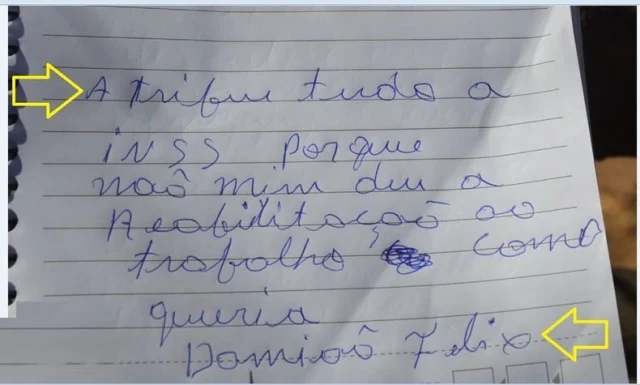 Atribue tudo a
iNSS Porque
naõ mim deu a
Reabilitaçaõ ao
trabalho, como
queria
Damiaõ Felix